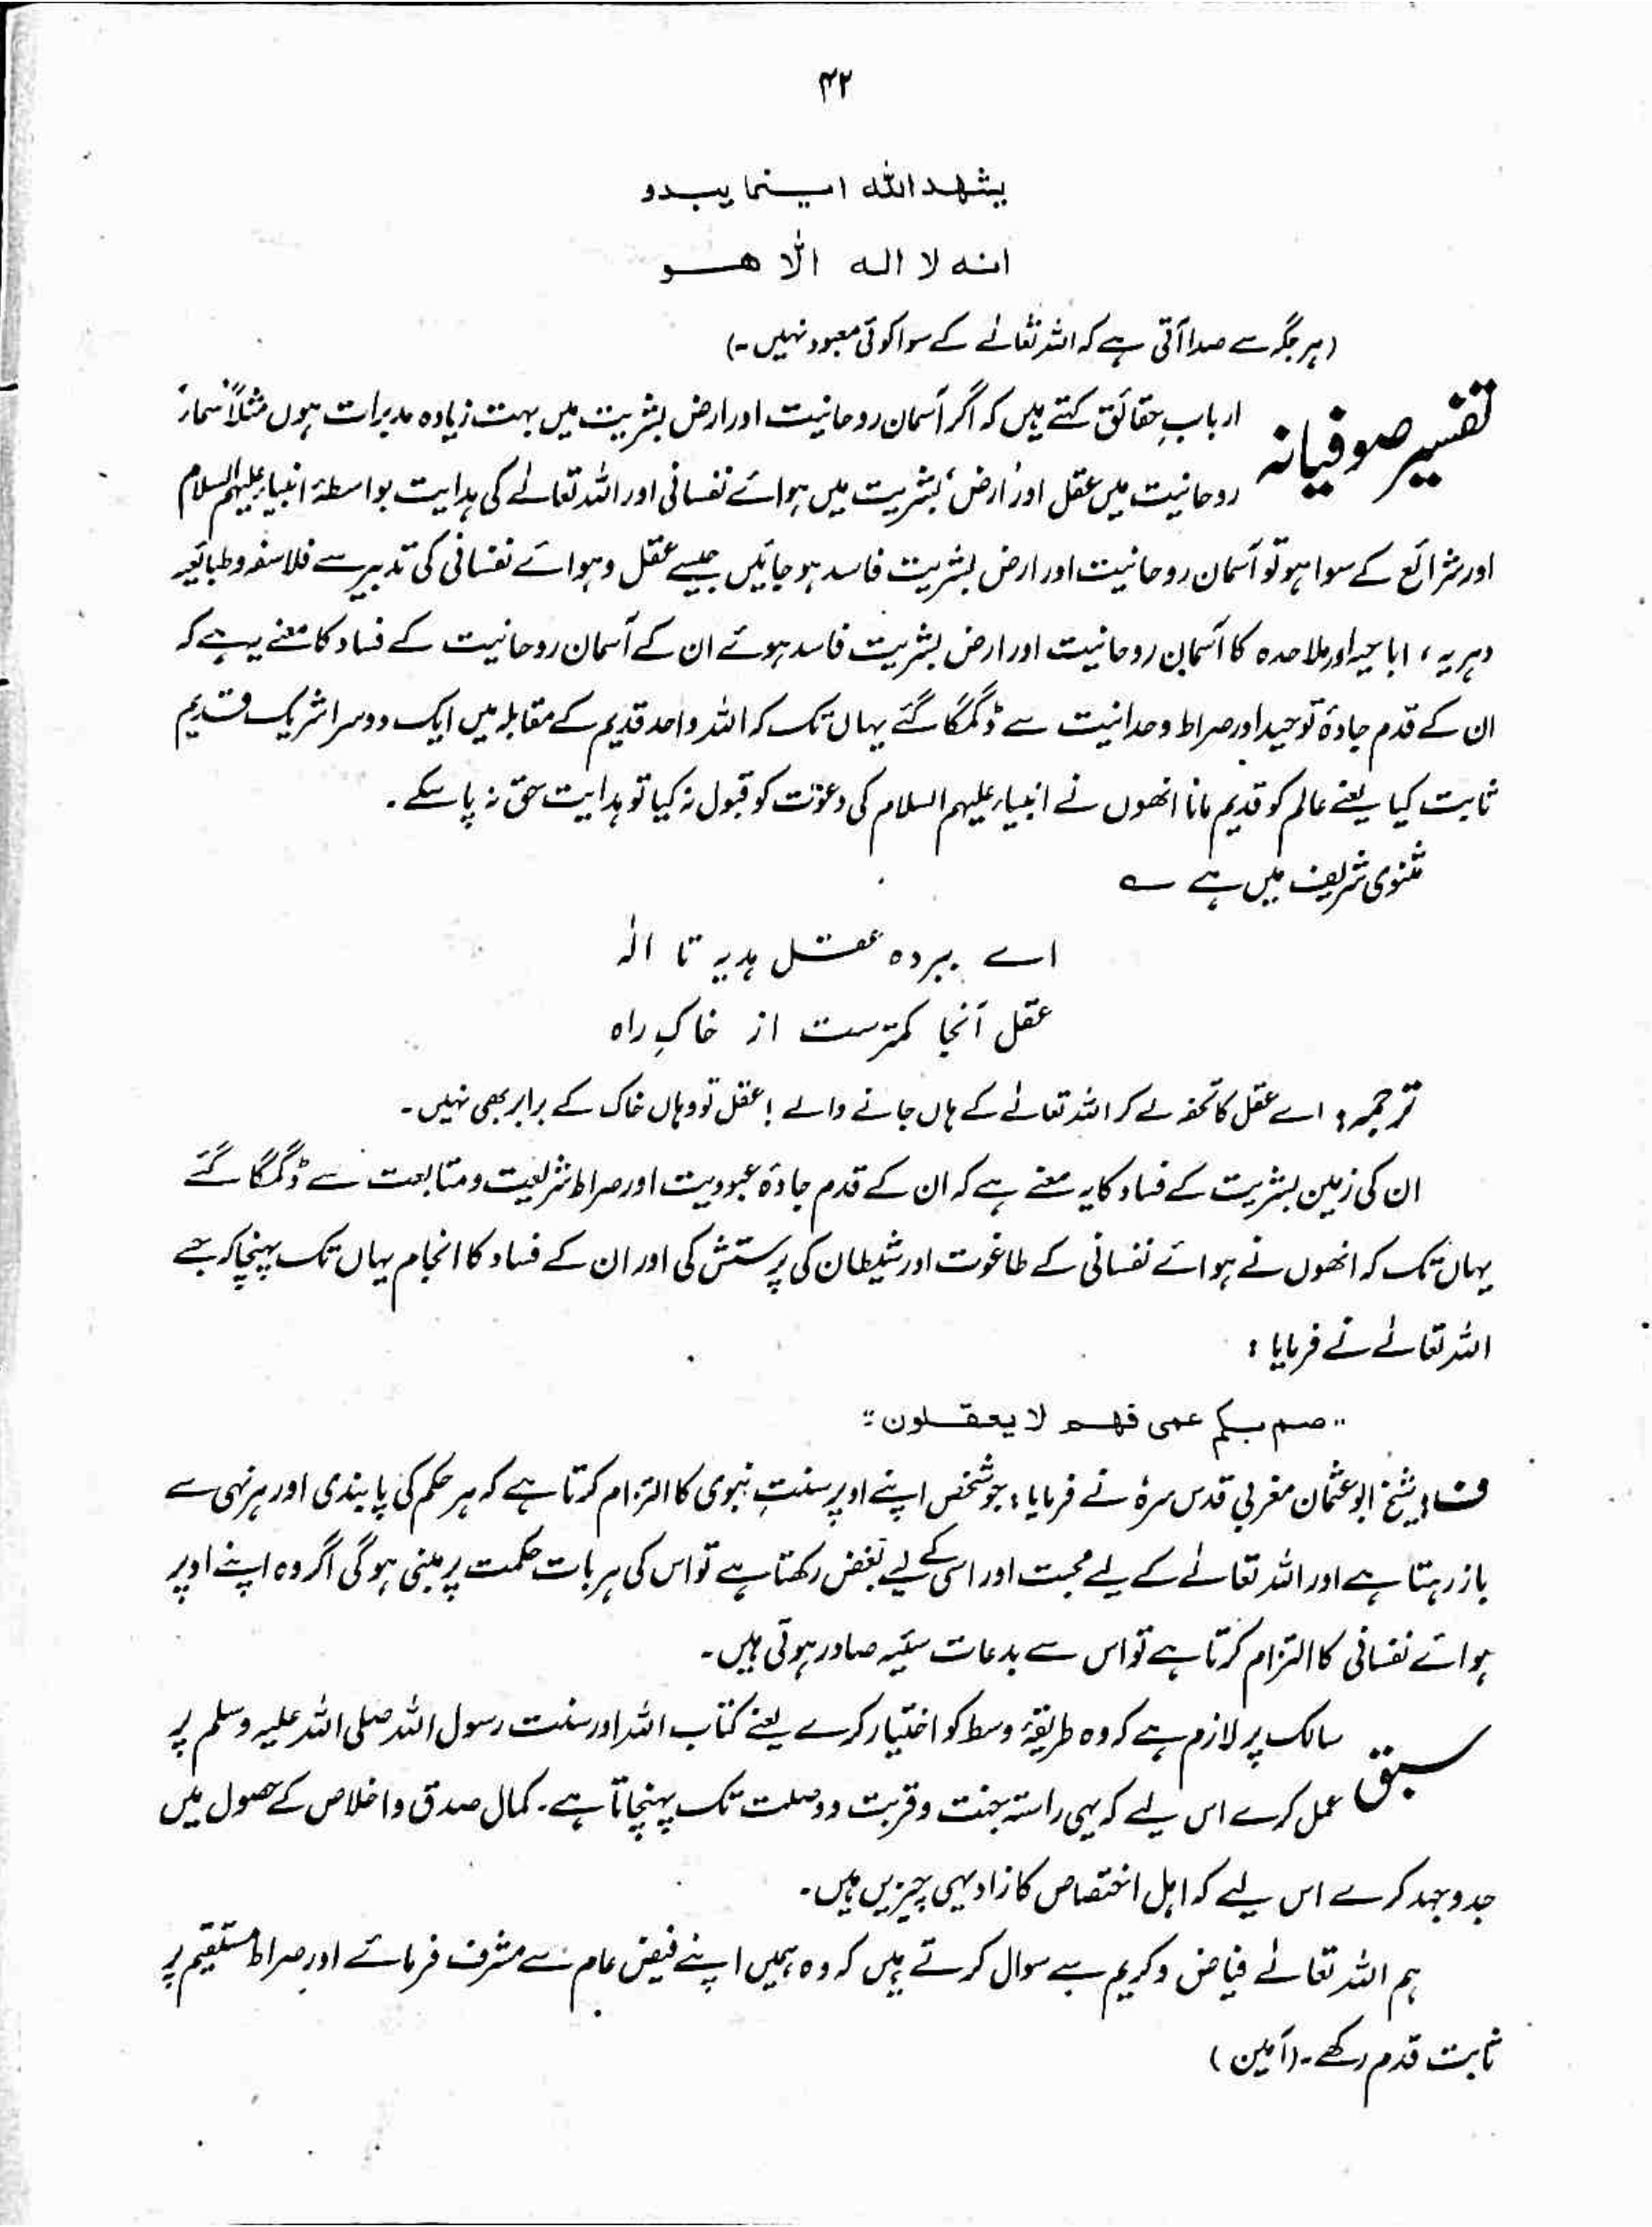 ۴۲
یشهد الله اینما یبدو
انه لا اله الّا هو
(ہر جگہ سے صدا آتی ہے کہ اللہ تعالےٰ کے سوا کوئی معبود نہیں۔)
تفسیر صوفیانہ ارباب حقائق کہتے ہیں کہ اگر آسمان روحانیت اور ارض بشریت میں بہت زیادہ مدبرات ہوں مثلاً سماء
روحانیت میں عقل اور ارض بشریت میں ہوائے نفسانی اور اللہ تعالےٰ کی ہدایت بواسطۂ انبیاء علیہم السلام
اور شرائع کے سوا ہو تو آسمان روحانیت اور ارض بشریت فاسد ہو جائیں جیسے عقل و ہوائے نفسانی کی تدبیر سے فلاسفہ و طبائعیہ
دہریہ، اباحیہ اور ملاحدہ کا آسمان روحانیت اور ارض بشریت فاسد ہوئے ان کے آسمان روحانیت کے فساد کا معنے یہ ہے کہ
ان کے قدم جادۂ توحید اور صراط وحدانیت سے ڈگمگا گئے یہاں تک کہ اللہ واحد قدیم کے مقابلہ میں ایک دوسرا شریک قدیم
ثابت کیا یعنے عالم کو قدیم مانا انھوں نے انبیاء علیہم السلام کی دعوت کو قبول نہ کیا تو ہدایت حق نہ پا سکے۔
مثنوی شریف میں ہے ؎
اے ببردہ عقل ہدیہ تا الٰہ
عقل آنجا کمترست از خاکِ راہ
ترجمہ: اے عقل کا تحفہ لے کر اللہ تعالےٰ کے ہاں جانے والے! عقل تو وہاں خاک کے برابر بھی نہیں۔
ان کی زمین بشریت کے فساد کا یہ معنے ہے کہ ان کے قدم جادۂ عبودیت اور صراط شریعت و متابعت سے ڈگمگا گئے
یہاں تک کہ انھوں نے ہوائے نفسانی کے طاغوت اور شیطان کی پرستش کی اور ان کے فساد کا انجام یہاں تک پہنچا کہ جسے
اللہ تعالےٰ نے فرمایا:
"صم بکم عمی فهم لا یعقلون"
ف: شیخ ابو عثمان مغربی قدس سرہٗ نے فرمایا: جو شخص اپنے اوپر سنتِ نبوی کا التزام کرتا ہے کہ ہر حکم کی پابندی اور ہر نہی سے
باز رہتا ہے اور اللہ تعالےٰ کے لیے محبت اور اسی کے لیے بغض رکھتا ہے تو اس کی ہر بات حکمت پر مبنی ہوگی اگر وہ اپنے اوپر
ہوائے نفسانی کا التزام کرتا ہے تو اس سے بدعات سیّئہ صادر ہوتی ہیں۔
سبق سالک پر لازم ہے کہ وہ طریقۂ وسط کو اختیار کرے یعنے کتاب اللہ اور سنت رسول اللہ صلی اللہ علیہ وسلم پر
عمل کرے اس لیے کہ یہی راستہ جنت و قربت و وصلت تک پہنچاتا ہے۔ کمال صدق و اخلاص کے حصول میں
جد و جہد کرے اس لیے کہ اہل اختصاص کا زاد یہی چیزیں ہیں۔
ہم اللہ تعالےٰ فیاض و کریم سے سوال کرتے ہیں کہ وہ ہمیں اپنے فیض عام سے مشرف فرمائے اور صراط مستقیم پر
ثابت قدم رکھے۔ (آمین)